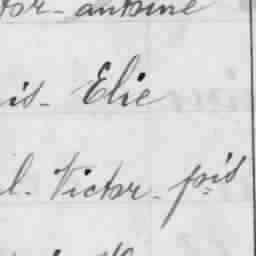 tor - antoine
is - Elie
l - Victor - fois